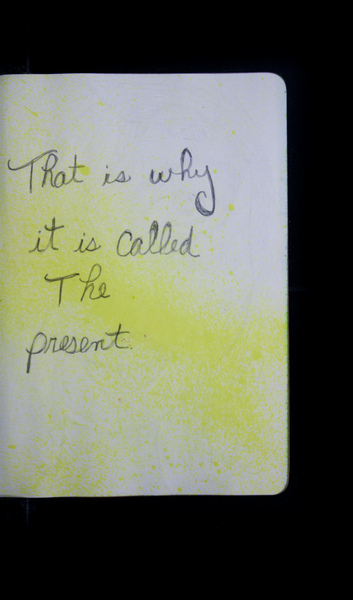 That is why
it is called
The
present.